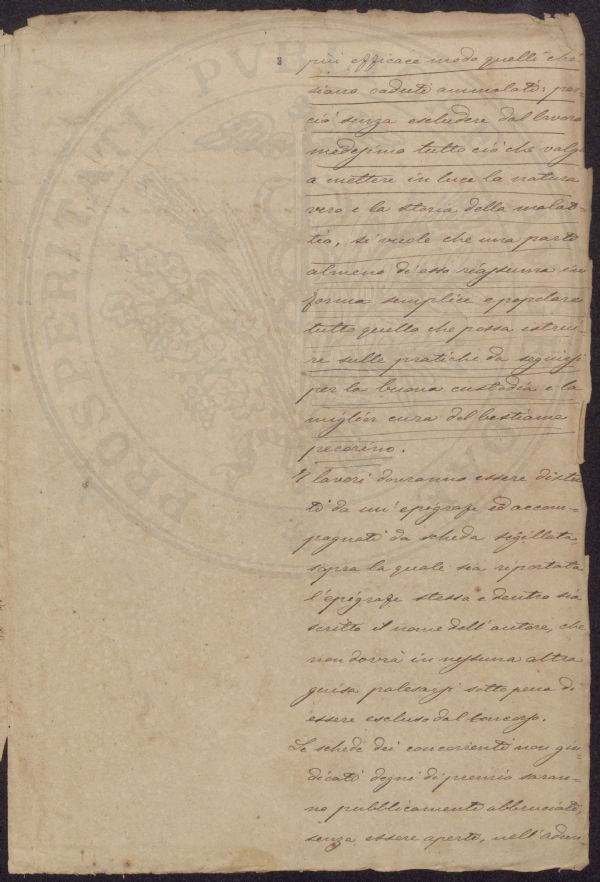 PROSPERITATI PVB
8
più efficace modo quelli che
siano caduti ammalati: per
ciò senza escludere dal lavoro
medesimo tutto ciò che valga
a mettere in luce la natura
vera e la storia della malat-
tia, si vuole che una parte
almeno di esso riassuma in
forma semplice e popolare
tutto quello che possa istrui-
re sulle pratiche da seguirsi
per la buona custodia e la
miglior cura del bestiame
pecorino.
I lavori dovranno essere distin
ti da un' epigrafe ed accom-
pagnati da scheda sigillata
sopra la quale sia riportata
l'epigrafe stessa e dentro sia
scritto il nome dell' autore, che
non dovrà in nessuna altra
guisa palesarsi sotto pena di
essere escluso dal concorso.
Le schede dei concorrenti non giu-
dicati degni di premio saran-
no pubblicamente abbruciate,
senza essere aperte, nell' adun